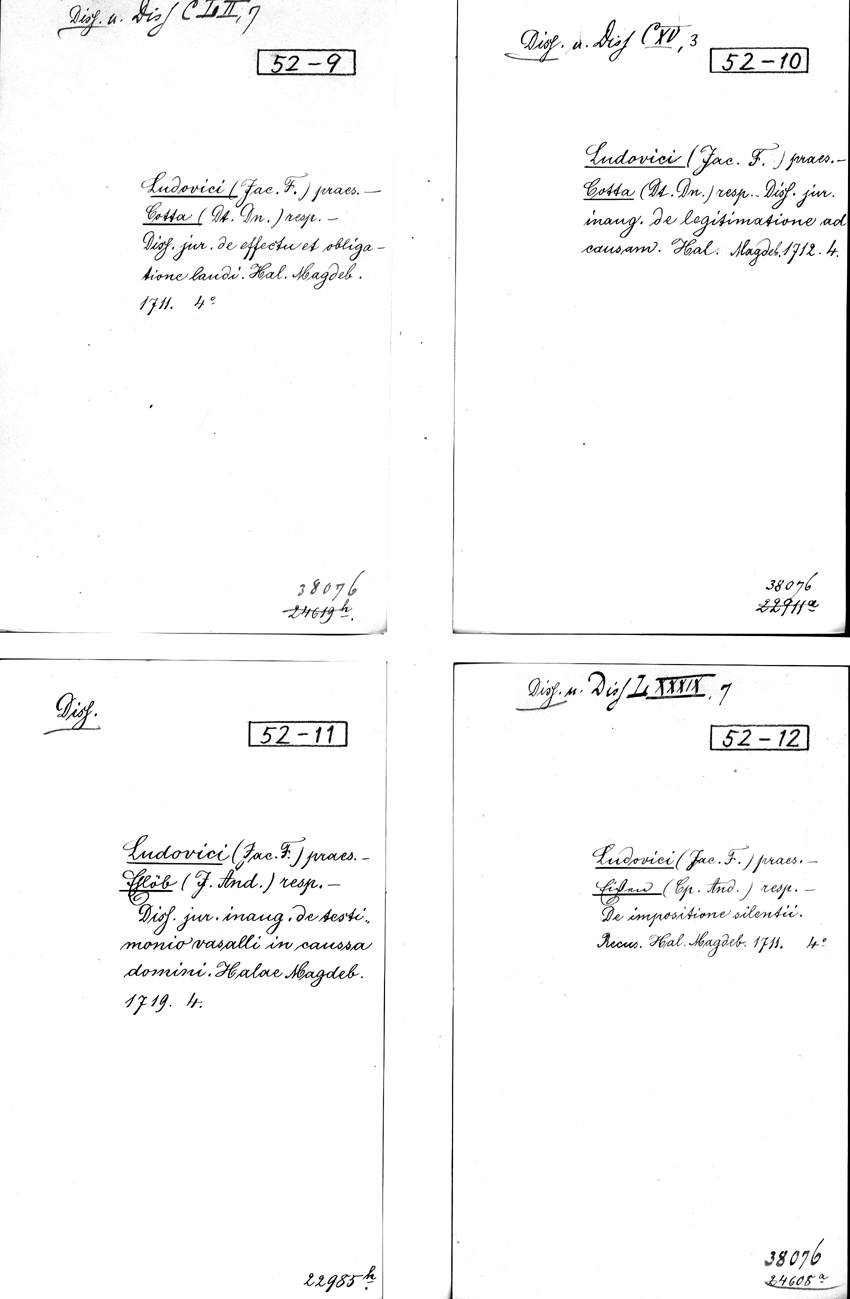 Diss. u. Diss CLII, 7
52-9
Ludovici (Jac. F.) praes. —
Cotta (Dt. Dn.) resp. —
Diss. jur. de effectu et obliga-
tione laudi. Hal. Magdeb.
1711. 4°
38076
24619h.
Diss. u. Diss CXV, 3
52-10
Ludovici (Jac. F.) praes. —
Cotta (Dt. Dn.) resp. — Diss. jur.
inaug. de legitimatione ad
causam. Hal. Magdeb. 1712. 4.
38076
22911a
Diss.
52-11
Ludovici (Jac. F.) praes. —
(J. And.) resp. —
Diss. jur. inaug. de testi-
monio vasalli in caussa
domini. Halae Magdeb.
1719. 4.
22985h.
Diss. u. Diss LXXXIX, 7
52-12
Ludovici (Jac. F.) praes. —
(Cp. And.) resp. —
De impositione silentii.
Recus. Hal. Magdeb. 1711. 4°
38076
24605a